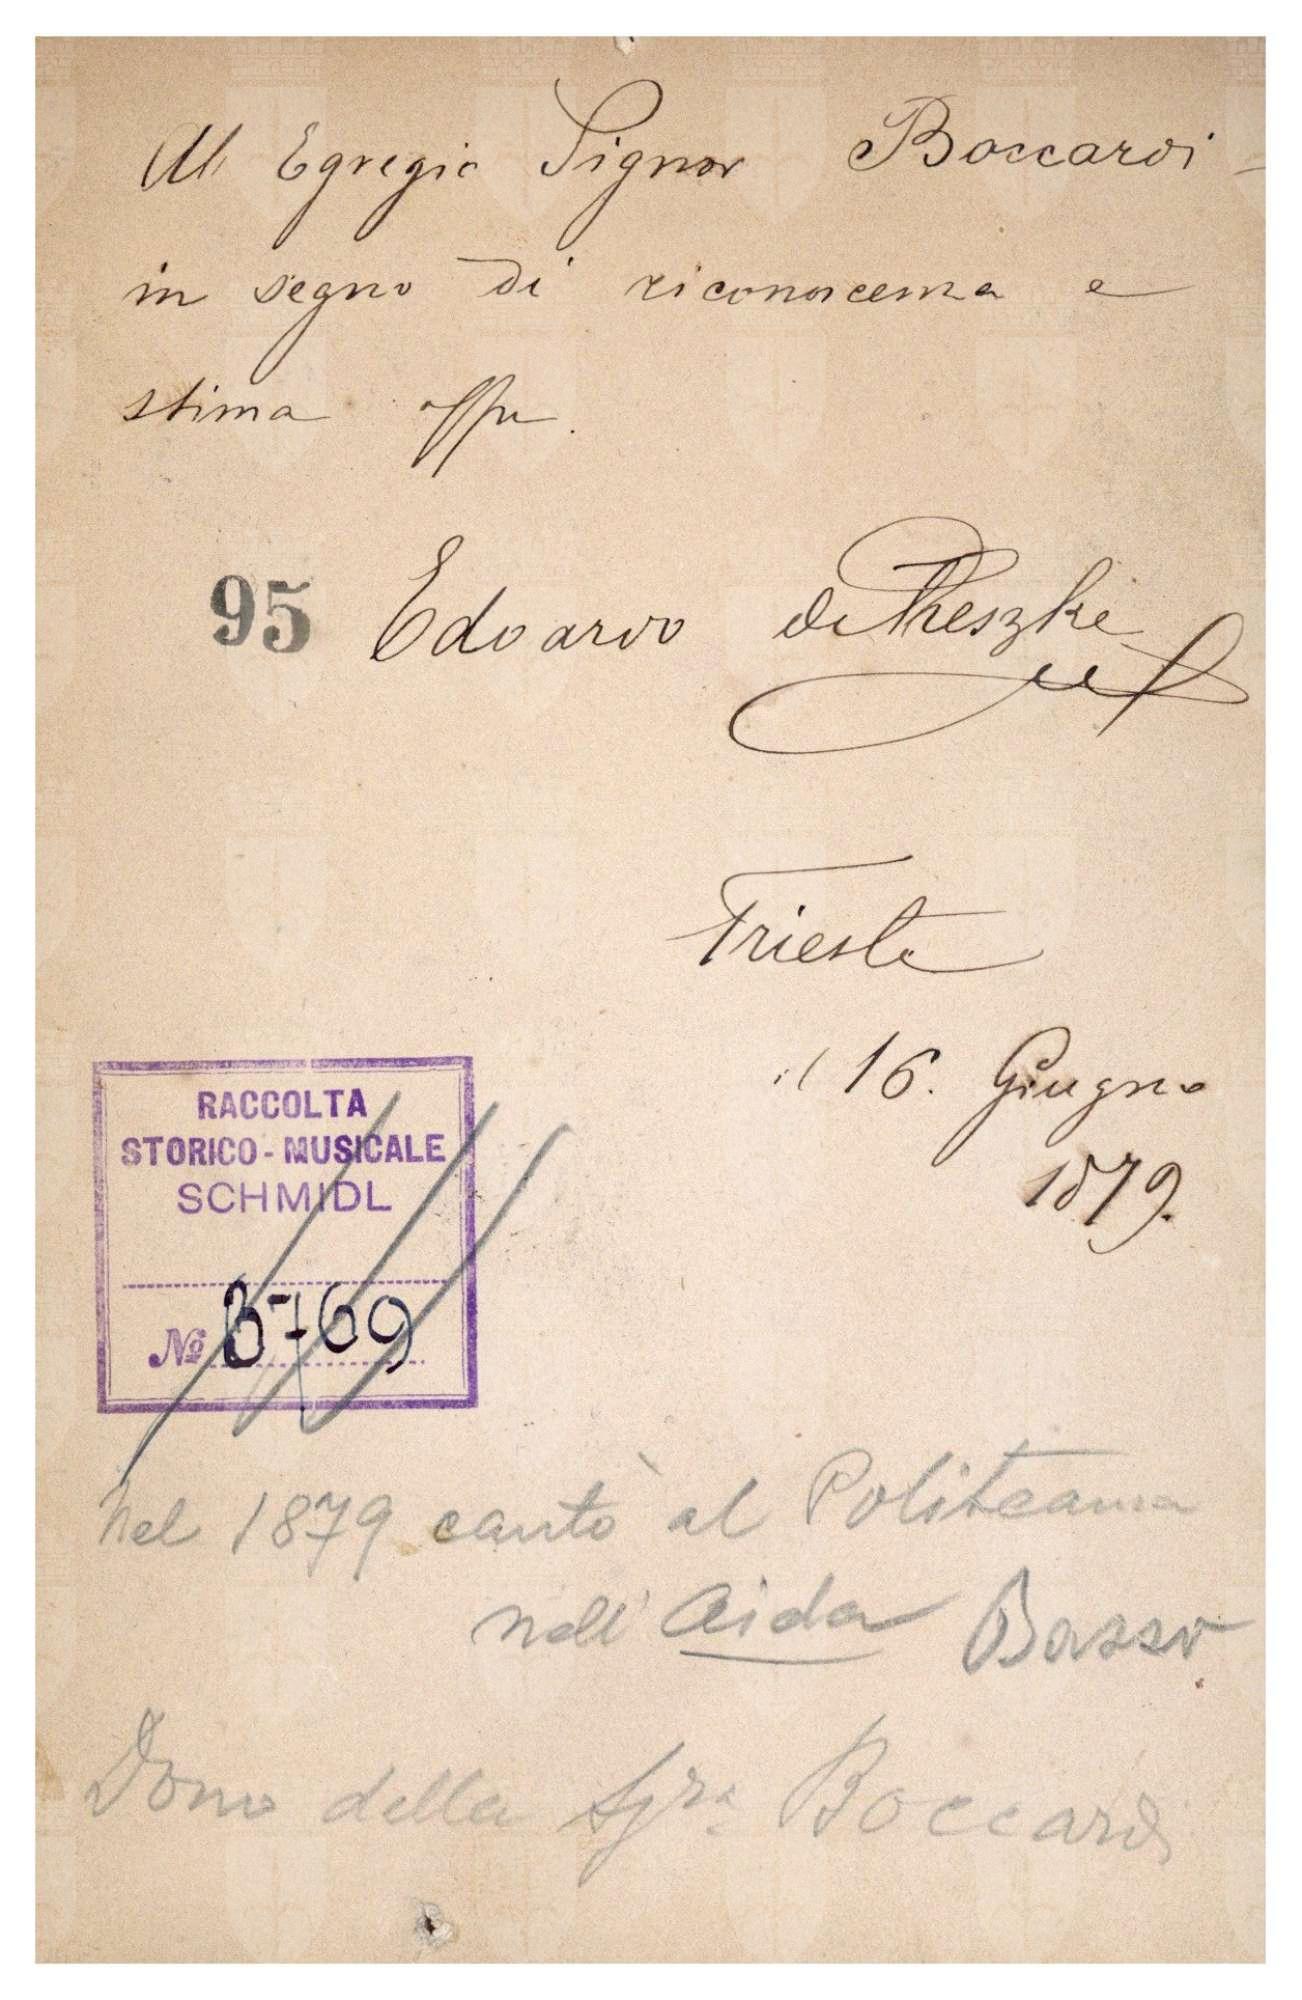 All Egregio Signor Boccardi
in segno di riconoscenza e
stima offre.
95 Edoardo de Reszke
Trieste
il 16. Giugno
1879.
RACCOLTA
STORICO-MUSICALE
SCHMIDL
No 3769
Nel 1879 cantò al Politeama
nell' Aida Basso
Dono della Sjra Boccardi